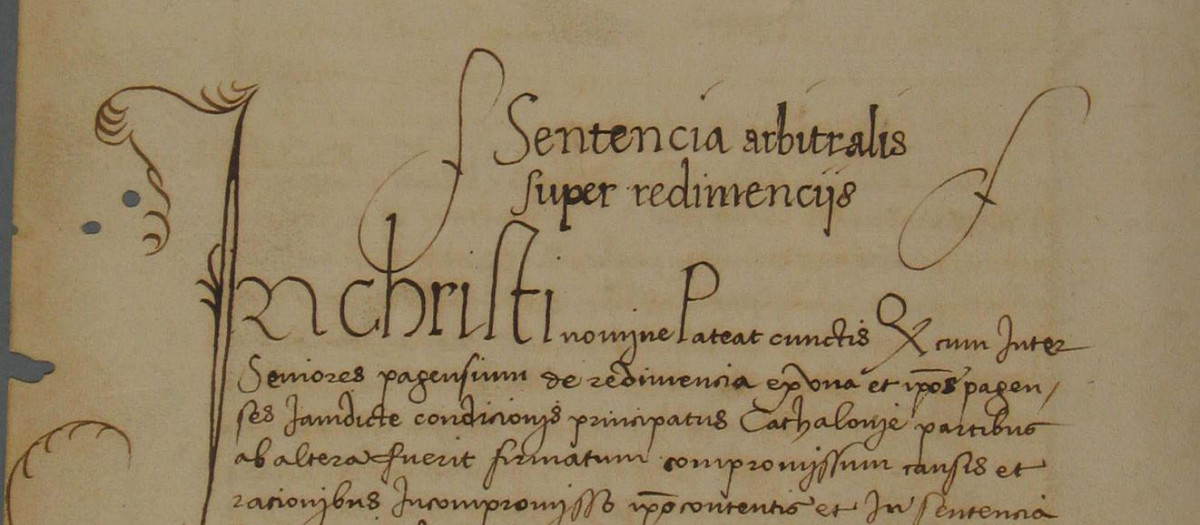 Sentencia arbitralis
super redimencijs
In christi nomine Pateat cunctis Qx cum Inter
Seniores pagensium de redimencia ex vna et ip̄os pagen/
ses Jamdicte condicionis principatus Cathalonie partibus
ab altera fuerit firmatum compromissum causis et
racionibus Incompromisso ip̄o contentis et In sentencia